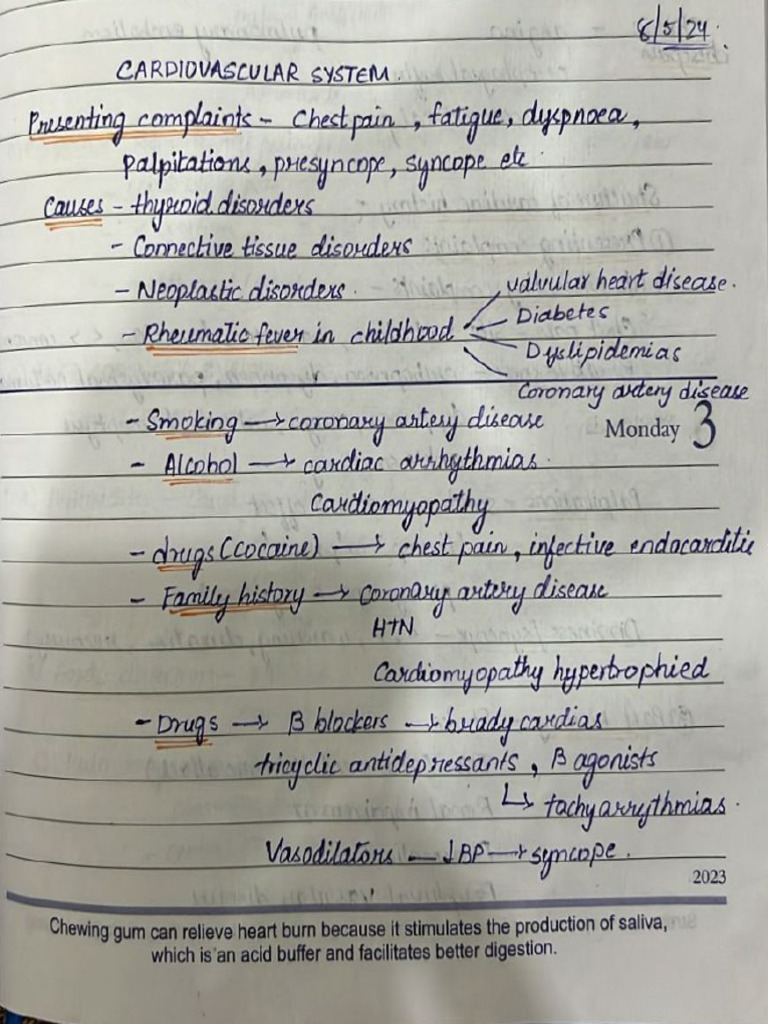 8/5/24.
CARDIOVASCULAR SYSTEM.
Presenting complaints - Chest pain, fatigue, dyspnoea,
Palpitations, presyncope, syncope etc.
Causes - thyroid disorders
- Connective tissue disorders
- Neoplastic disorders.
valvular heart disease.
- Rheumatic fever in childhood
Diabetes
Dyslipidemias
Coronary artery disease
- Smoking → coronary artery disease
Monday 3
- Alcohol → cardiac arrhythmias.
Cardiomyopathy
- drugs (cocaine) → chest pain, infective endocarditis
- Family history → Coronary artery disease
HTN
Cardiomyopathy hypertrophied
- Drugs → β blockers → brady cardias
tricyclic antidepressants, β agonists
↳ tachyarrythmias.
Vasodilators — ↓BP → syncope.
2023
Chewing gum can relieve heart burn because it stimulates the production of saliva,
which is an acid buffer and facilitates better digestion.